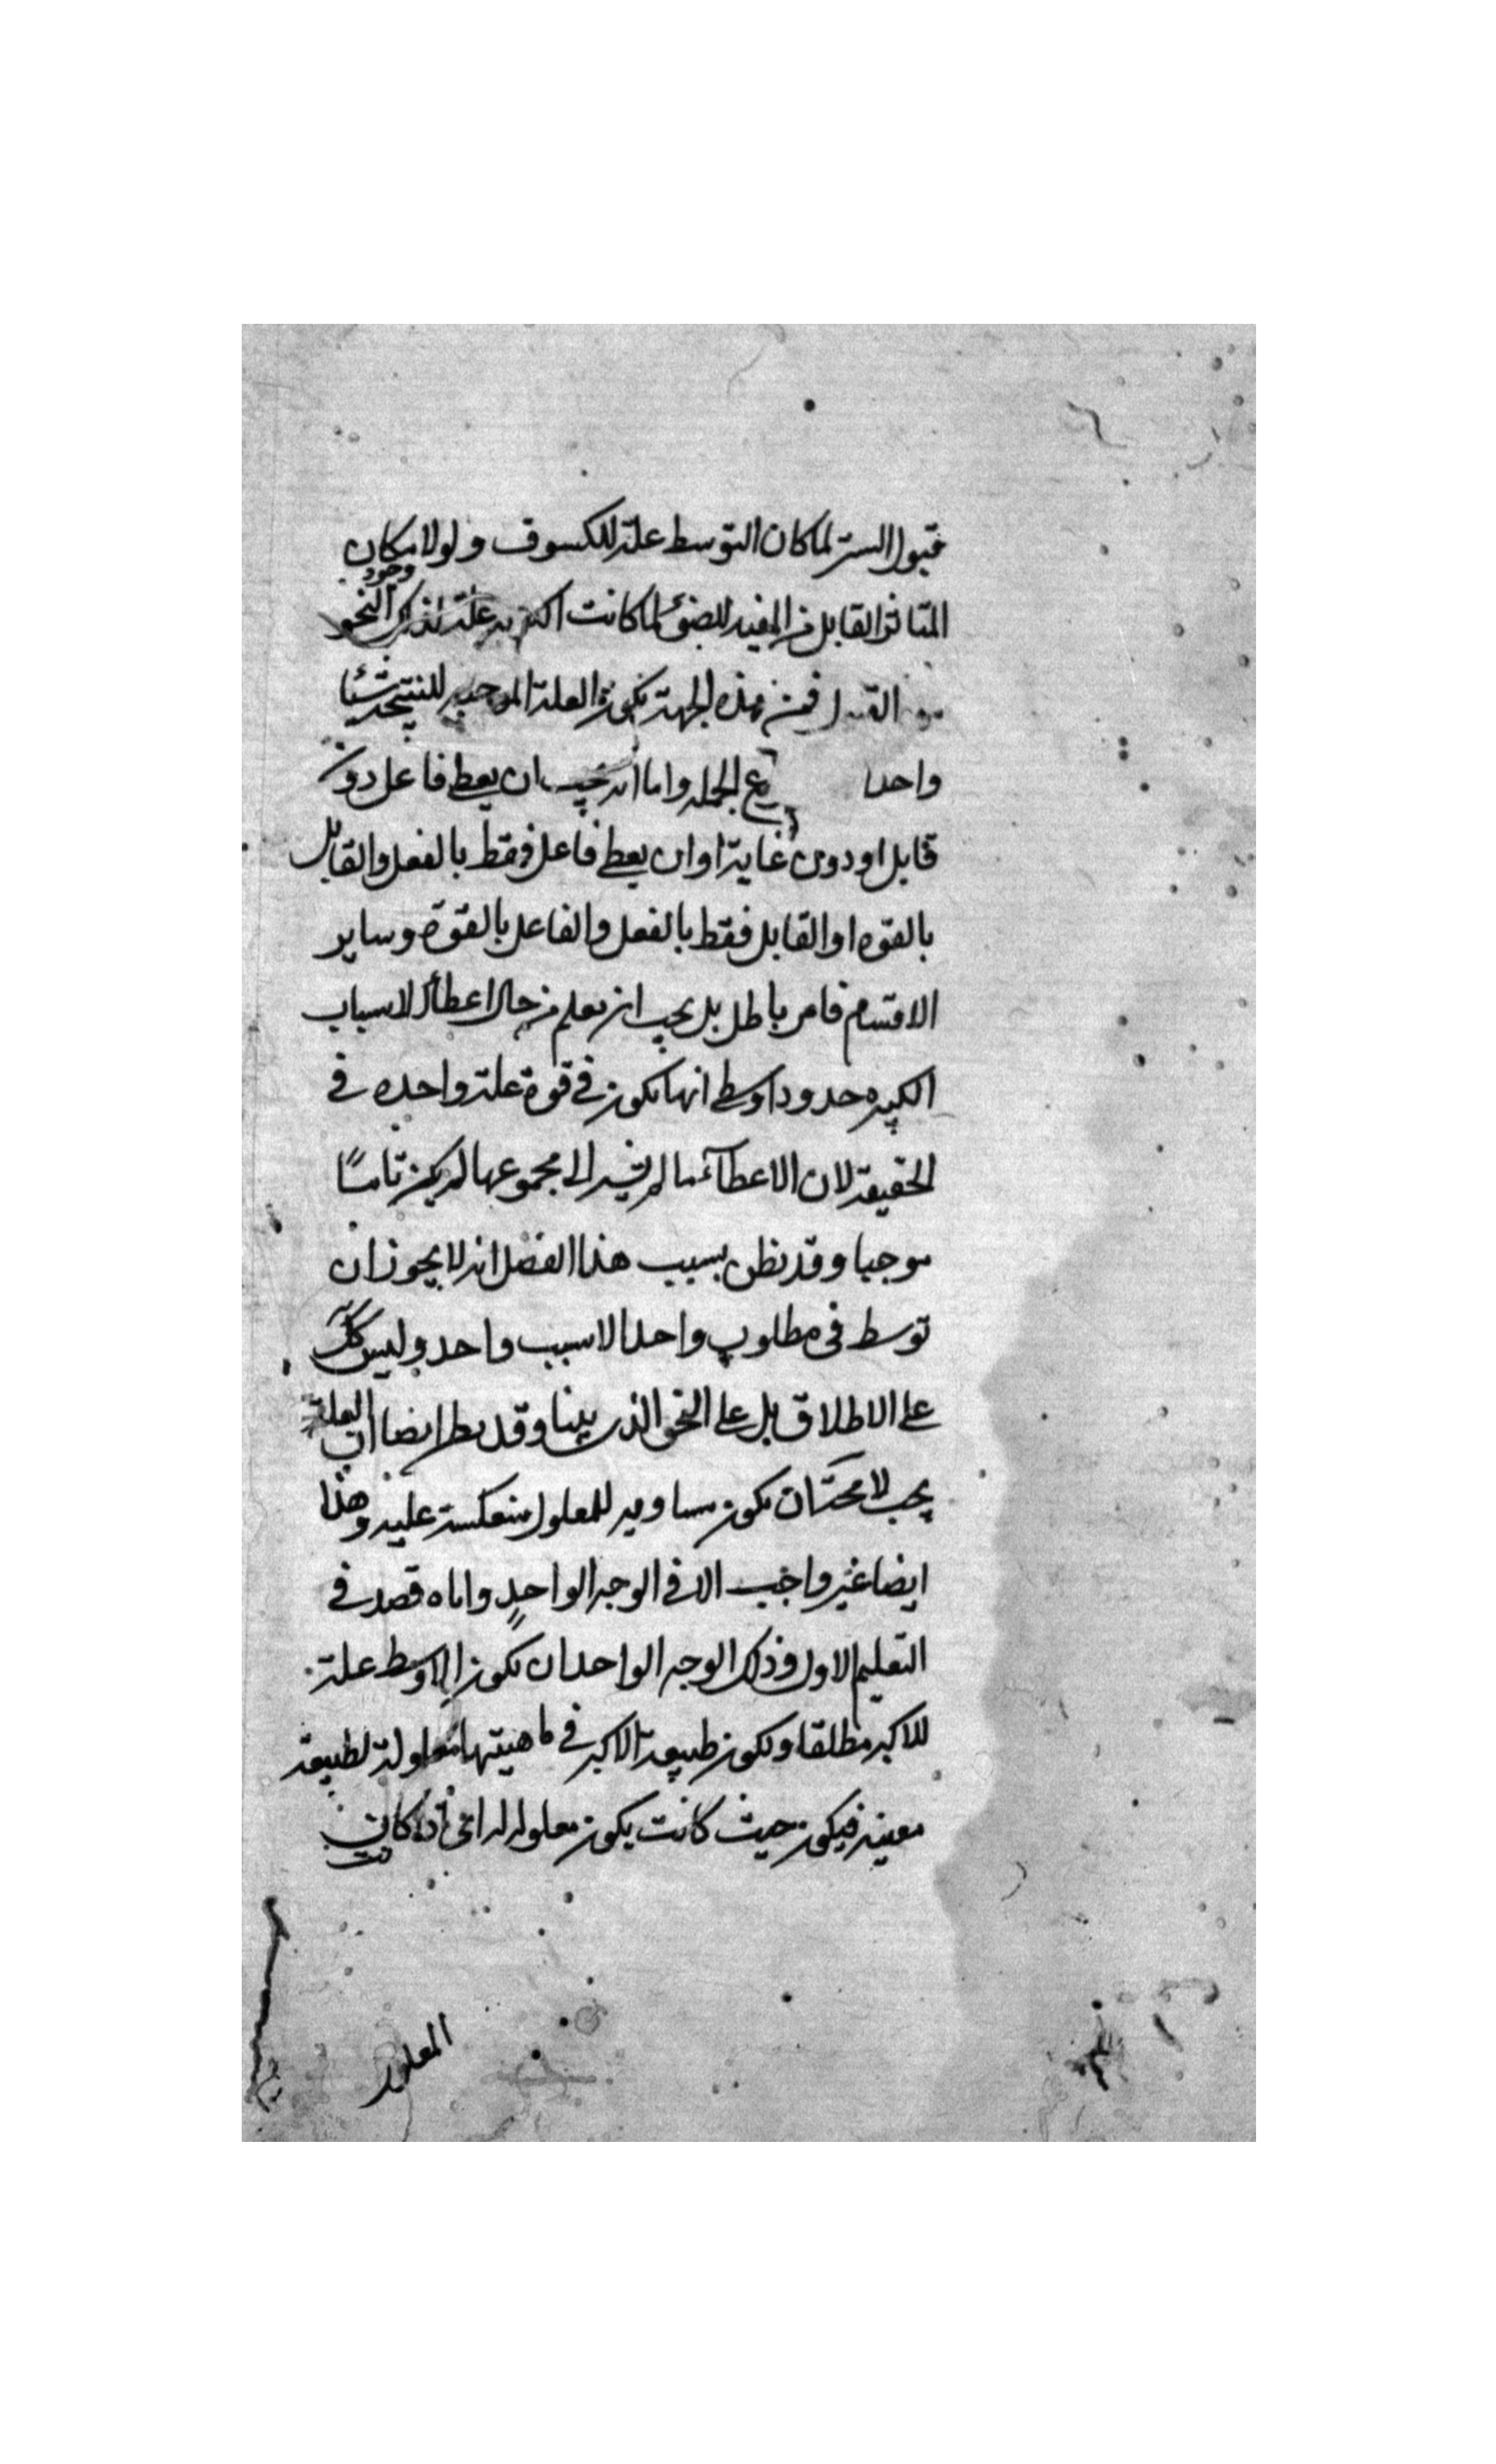 قبول الستر لما كان التوسط علة للكسوف ولولا مكان
وجود
المتاثر القابل من المفيد للضوء لما كانت الكرية علة لذلك النحو
من القبول فمن هذه الجهة تكون العلة الموجبة للنتيجة شيئا
واحدا الجملة واما انه يجب ان يعطى فاعل دون
قابل او دون غاية او ان يعطى فاعل فقط بالفعل والقابل
بالقوه او القابل فقط بالفعل والفاعل بالقوة وساير
الاقسام فامر باطل بل يجب ان يعلم من حال اعطاء الاسباب
الكثيره حدودا وسطى انها تكون في قوة علة واحده في
الحقيقة لان الاعطاء مما لم يشر الى مجموعها لم يكن تاما
موجبا وقد يظن بسبب هذا الفصل انه لا يجوز ان
توسط فى مطلوب واحد الا سبب واحد وليس كك
على الاطلاق بل على النحو الذى بينا وقد يظن ايضا ان العلة
يجب لا محة ان تكون مساوية للمعلول منعكسة عليه وهذا
ايضا غير واجب الا في الوجه الواحد واياه قصد في
التعليم الاول وذلك الوجه الواحد ان تكون الاوسط علة
للاكبر مطلقا وتكون طبيعة الاكبر في ماهيتها معلولة لطبيعة
معينة فيكون حيث كانت يكون معلوله لها اذا كانت
المعلول